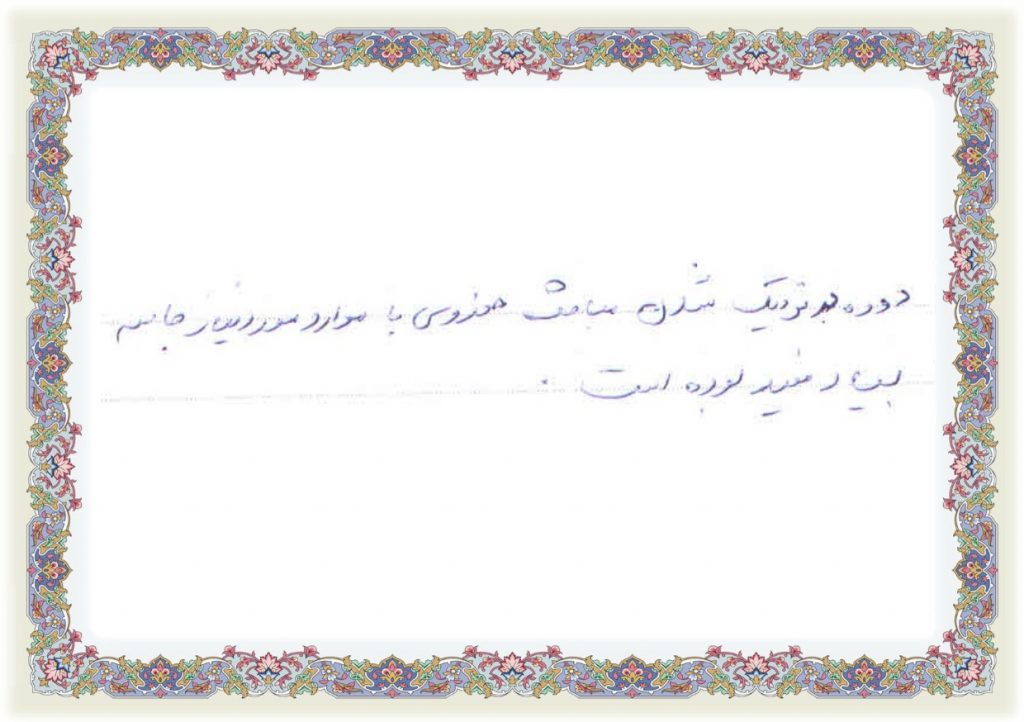 دوره بر نزدیک شدن مباحث حوزوی با موارد مورد نیاز جامعه
بسیار مفید بوده است.